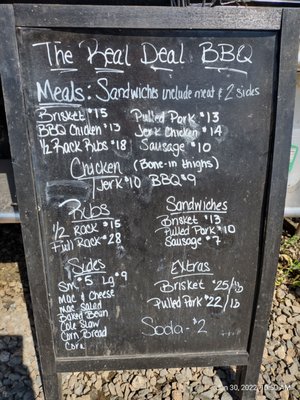 The Real Deal BBQ
Meals: Sandwiches include meat & 2 sides
Brisket $15 Pulled Pork $13
BBQ Chicken $13 Jerk Chicken $14
1/2 Rack Rubs $18 Sausage $10
Chicken (Bone-in thighs)
Jerk $10 BBQ $9
Rubs
1/2 Rack $15
Full Rack $28
Sandwiches
Brisket $13
Pulled Pork $10
Sausage $7
Sides
Sm $5 Lg $9
Mac & Cheese
Mac Salad
Baked Bean
Cole Slaw
Corn Bread
Corn
Extras
Brisket $25/lb
Pulled Pork $22/lb
Soda - $2
30, 2022 10:50 AM